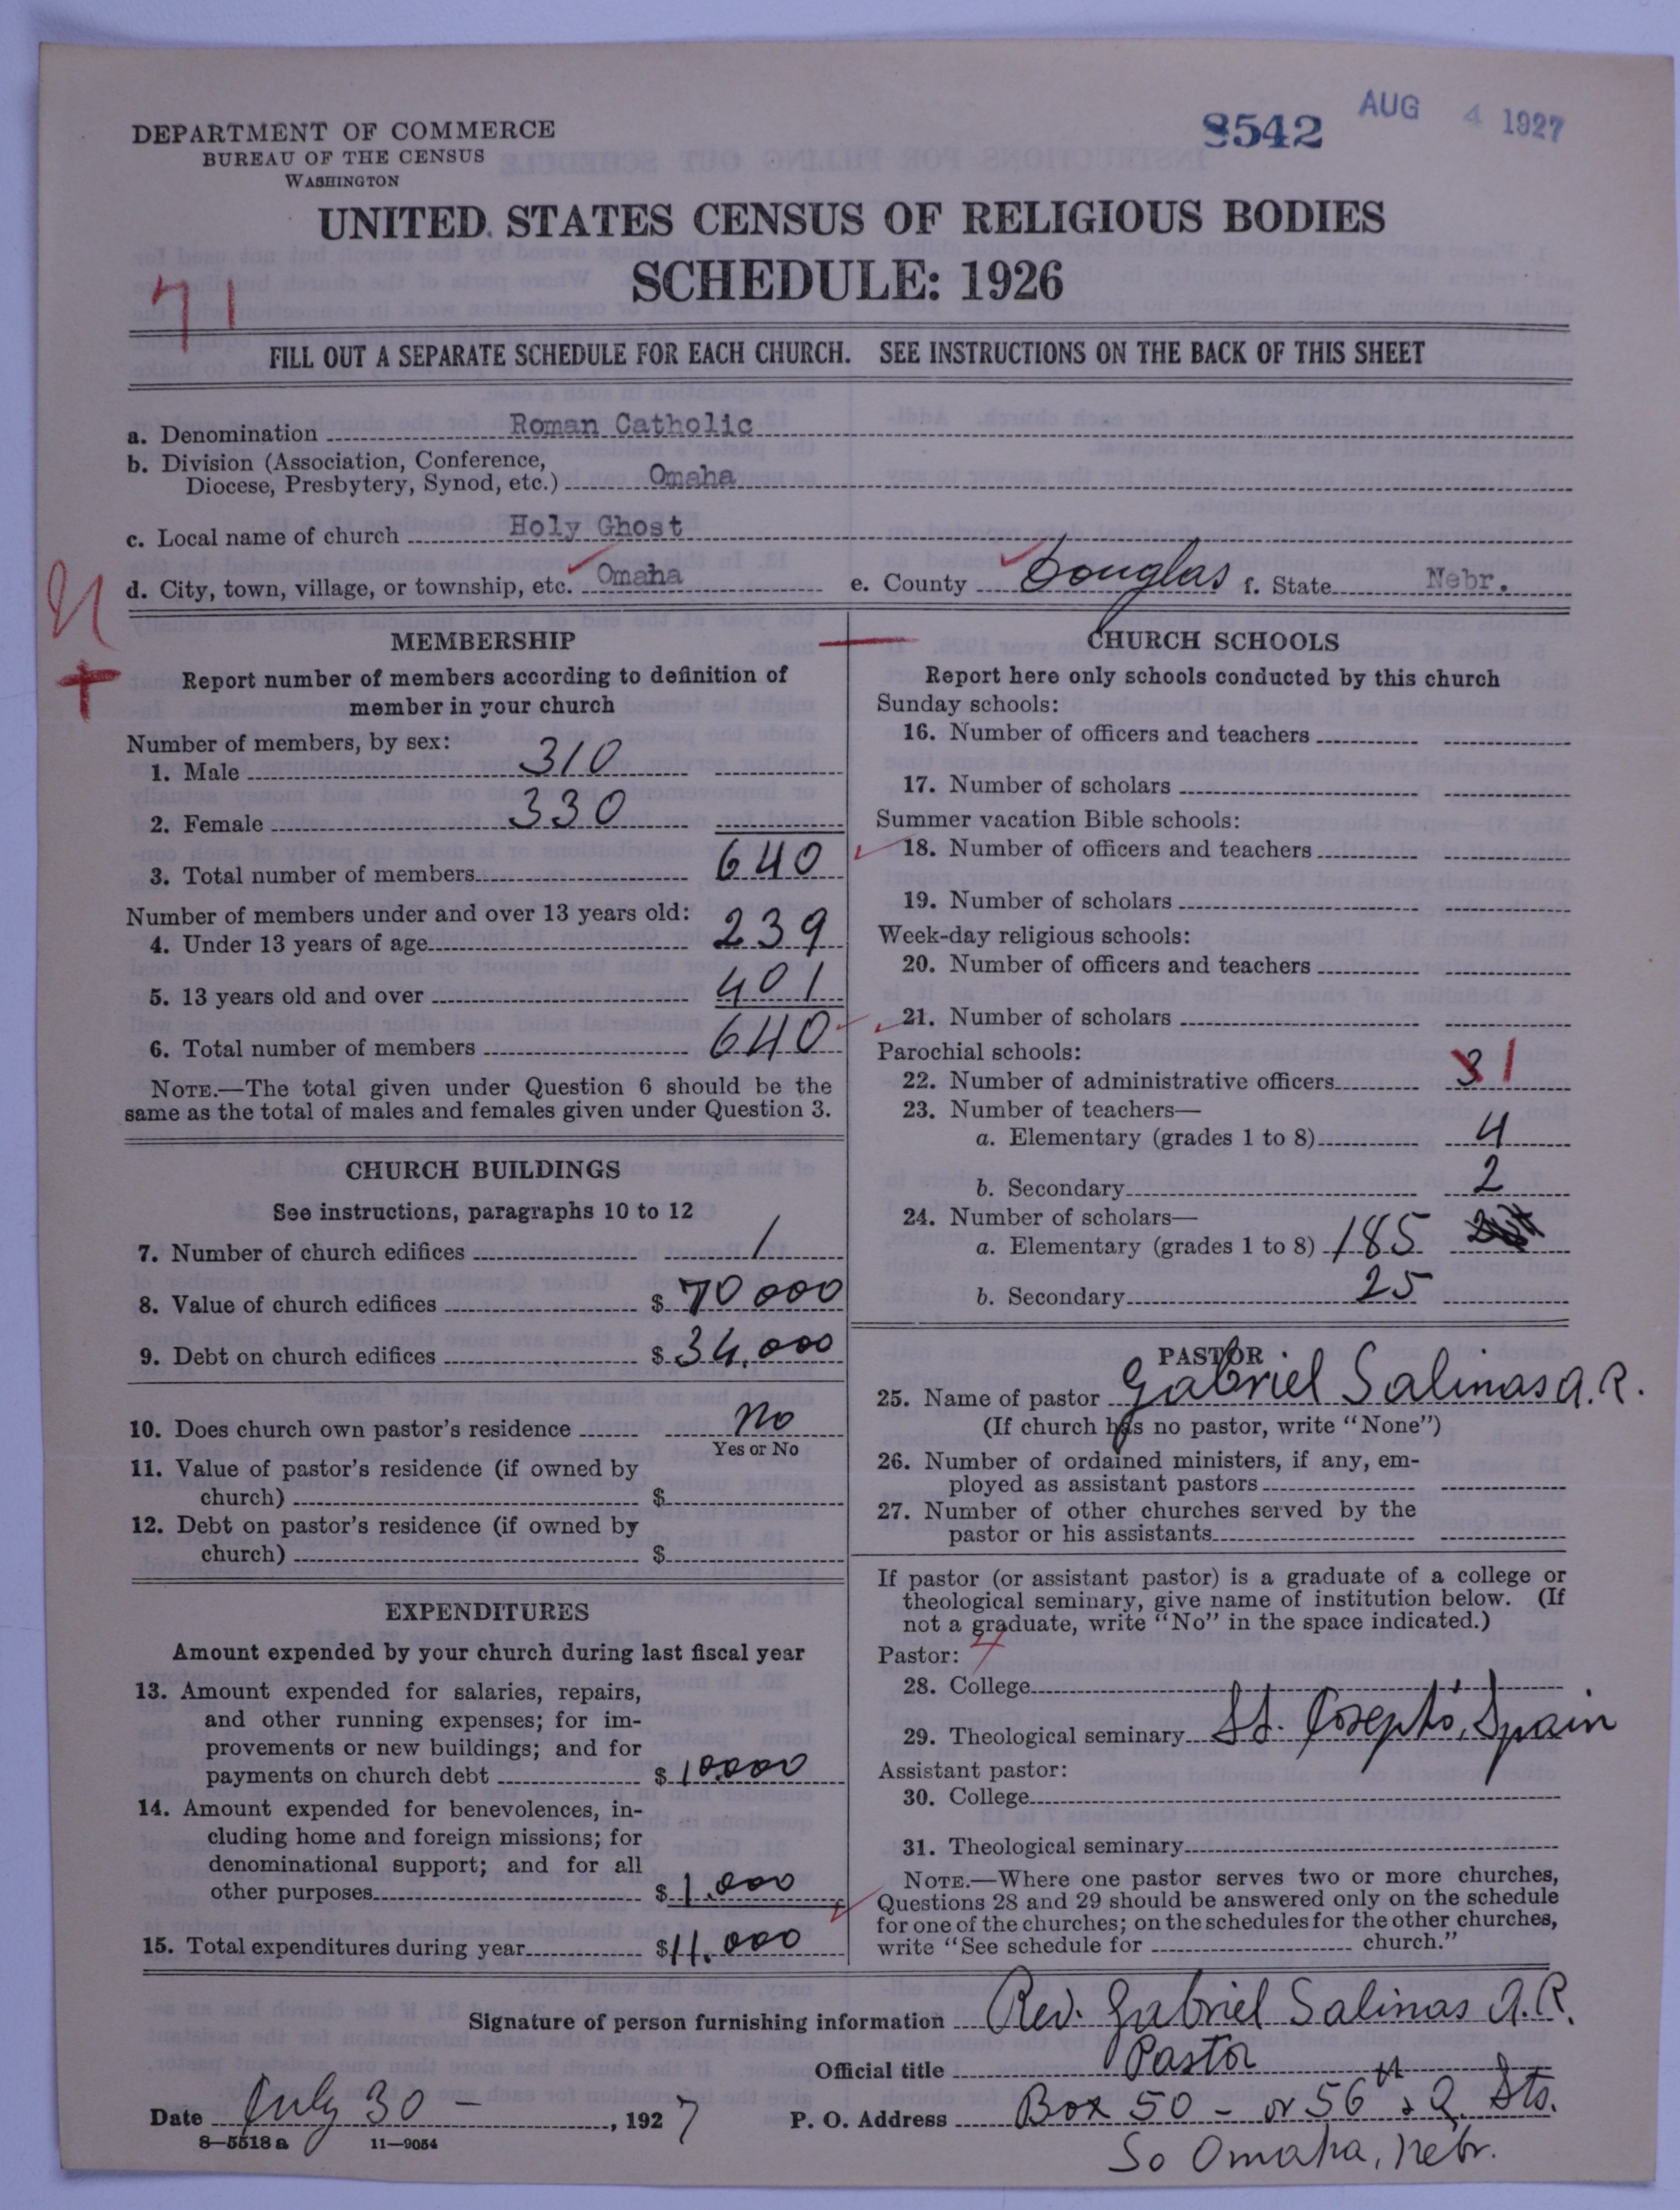 DEPARTMENT OF COMMERCE
BUREAU OF THE CENSUS
WASHINGTON
8542
AUG 4 1927
UNITED STATES CENSUS OF RELIGIOUS BODIES
SCHEDULE: 1926
71
FILL OUT A SEPARATE SCHEDULE FOR EACH CHURCH. SEE INSTRUCTIONS ON THE BACK OF THIS SHEET
a. Denomination Roman Catholic
b. Division (Association, Conference,
Diocese, Presbytery, Synod, etc.) Omaha
c. Local name of church Holy Ghost
d. City, town, village, or township, etc. Omaha e. County Douglas f. State Nebr.
MEMBERSHIP
Report number of members according to definition of
member in your church
Number of members, by sex:
1. Male 310
2. Female 330
3. Total number of members 640
Number of members under and over 13 years old:
4. Under 13 years of age 239
5. 13 years old and over 401
6. Total number of members 640
NOTE.—The total given under Question 6 should be the
same as the total of males and females given under Question 3.
CHURCH BUILDINGS
See instructions, paragraphs 10 to 12
7. Number of church edifices 1
8. Value of church edifices $ 70000
9. Debt on church edifices $ 34,000
10. Does church own pastor's residence No
Yes or No
11. Value of pastor's residence (if owned by
church) $
12. Debt on pastor's residence (if owned by
church) $
EXPENDITURES
Amount expended by your church during last fiscal year
13. Amount expended for salaries, repairs,
and other running expenses; for im-
provements or new buildings; and for
payments on church debt $ 10.000
14. Amount expended for benevolences, in-
cluding home and foreign missions; for
denominational support; and for all
other purposes $ 1.000
15. Total expenditures during year $ 11.000
CHURCH SCHOOLS
Report here only schools conducted by this church
Sunday schools:
16. Number of officers and teachers
17. Number of scholars
Summer vacation Bible schools:
18. Number of officers and teachers
19. Number of scholars
Week-day religious schools:
20. Number of officers and teachers
21. Number of scholars
Parochial schools:
22. Number of administrative officers 3 1
23. Number of teachers—
a. Elementary (grades 1 to 8) 4
b. Secondary 2
24. Number of scholars—
a. Elementary (grades 1 to 8) 185
b. Secondary 25
PASTOR
25. Name of pastor Gabriel Salinas A.R.
(If church has no pastor, write "None")
26. Number of ordained ministers, if any, em-
ployed as assistant pastors
27. Number of other churches served by the
pastor or his assistants
If pastor (or assistant pastor) is a graduate of a college or
theological seminary, give name of institution below. (If
not a graduate, write "No" in the space indicated.)
Pastor:
28. College
29. Theological seminary St. Joseph's, Spain
Assistant pastor:
30. College
31. Theological seminary
NOTE.—Where one pastor serves two or more churches,
Questions 28 and 29 should be answered only on the schedule
for one of the churches; on the schedules for the other churches,
write "See schedule for church."
Signature of person furnishing information Rev. Gabriel Salinas A.R.
Official title Pastor
Date July 30 - , 1927 P. O. Address Box 50 - or 56th & Q. Sts.
8—5518a 11—9054
So Omaha, Nebr.